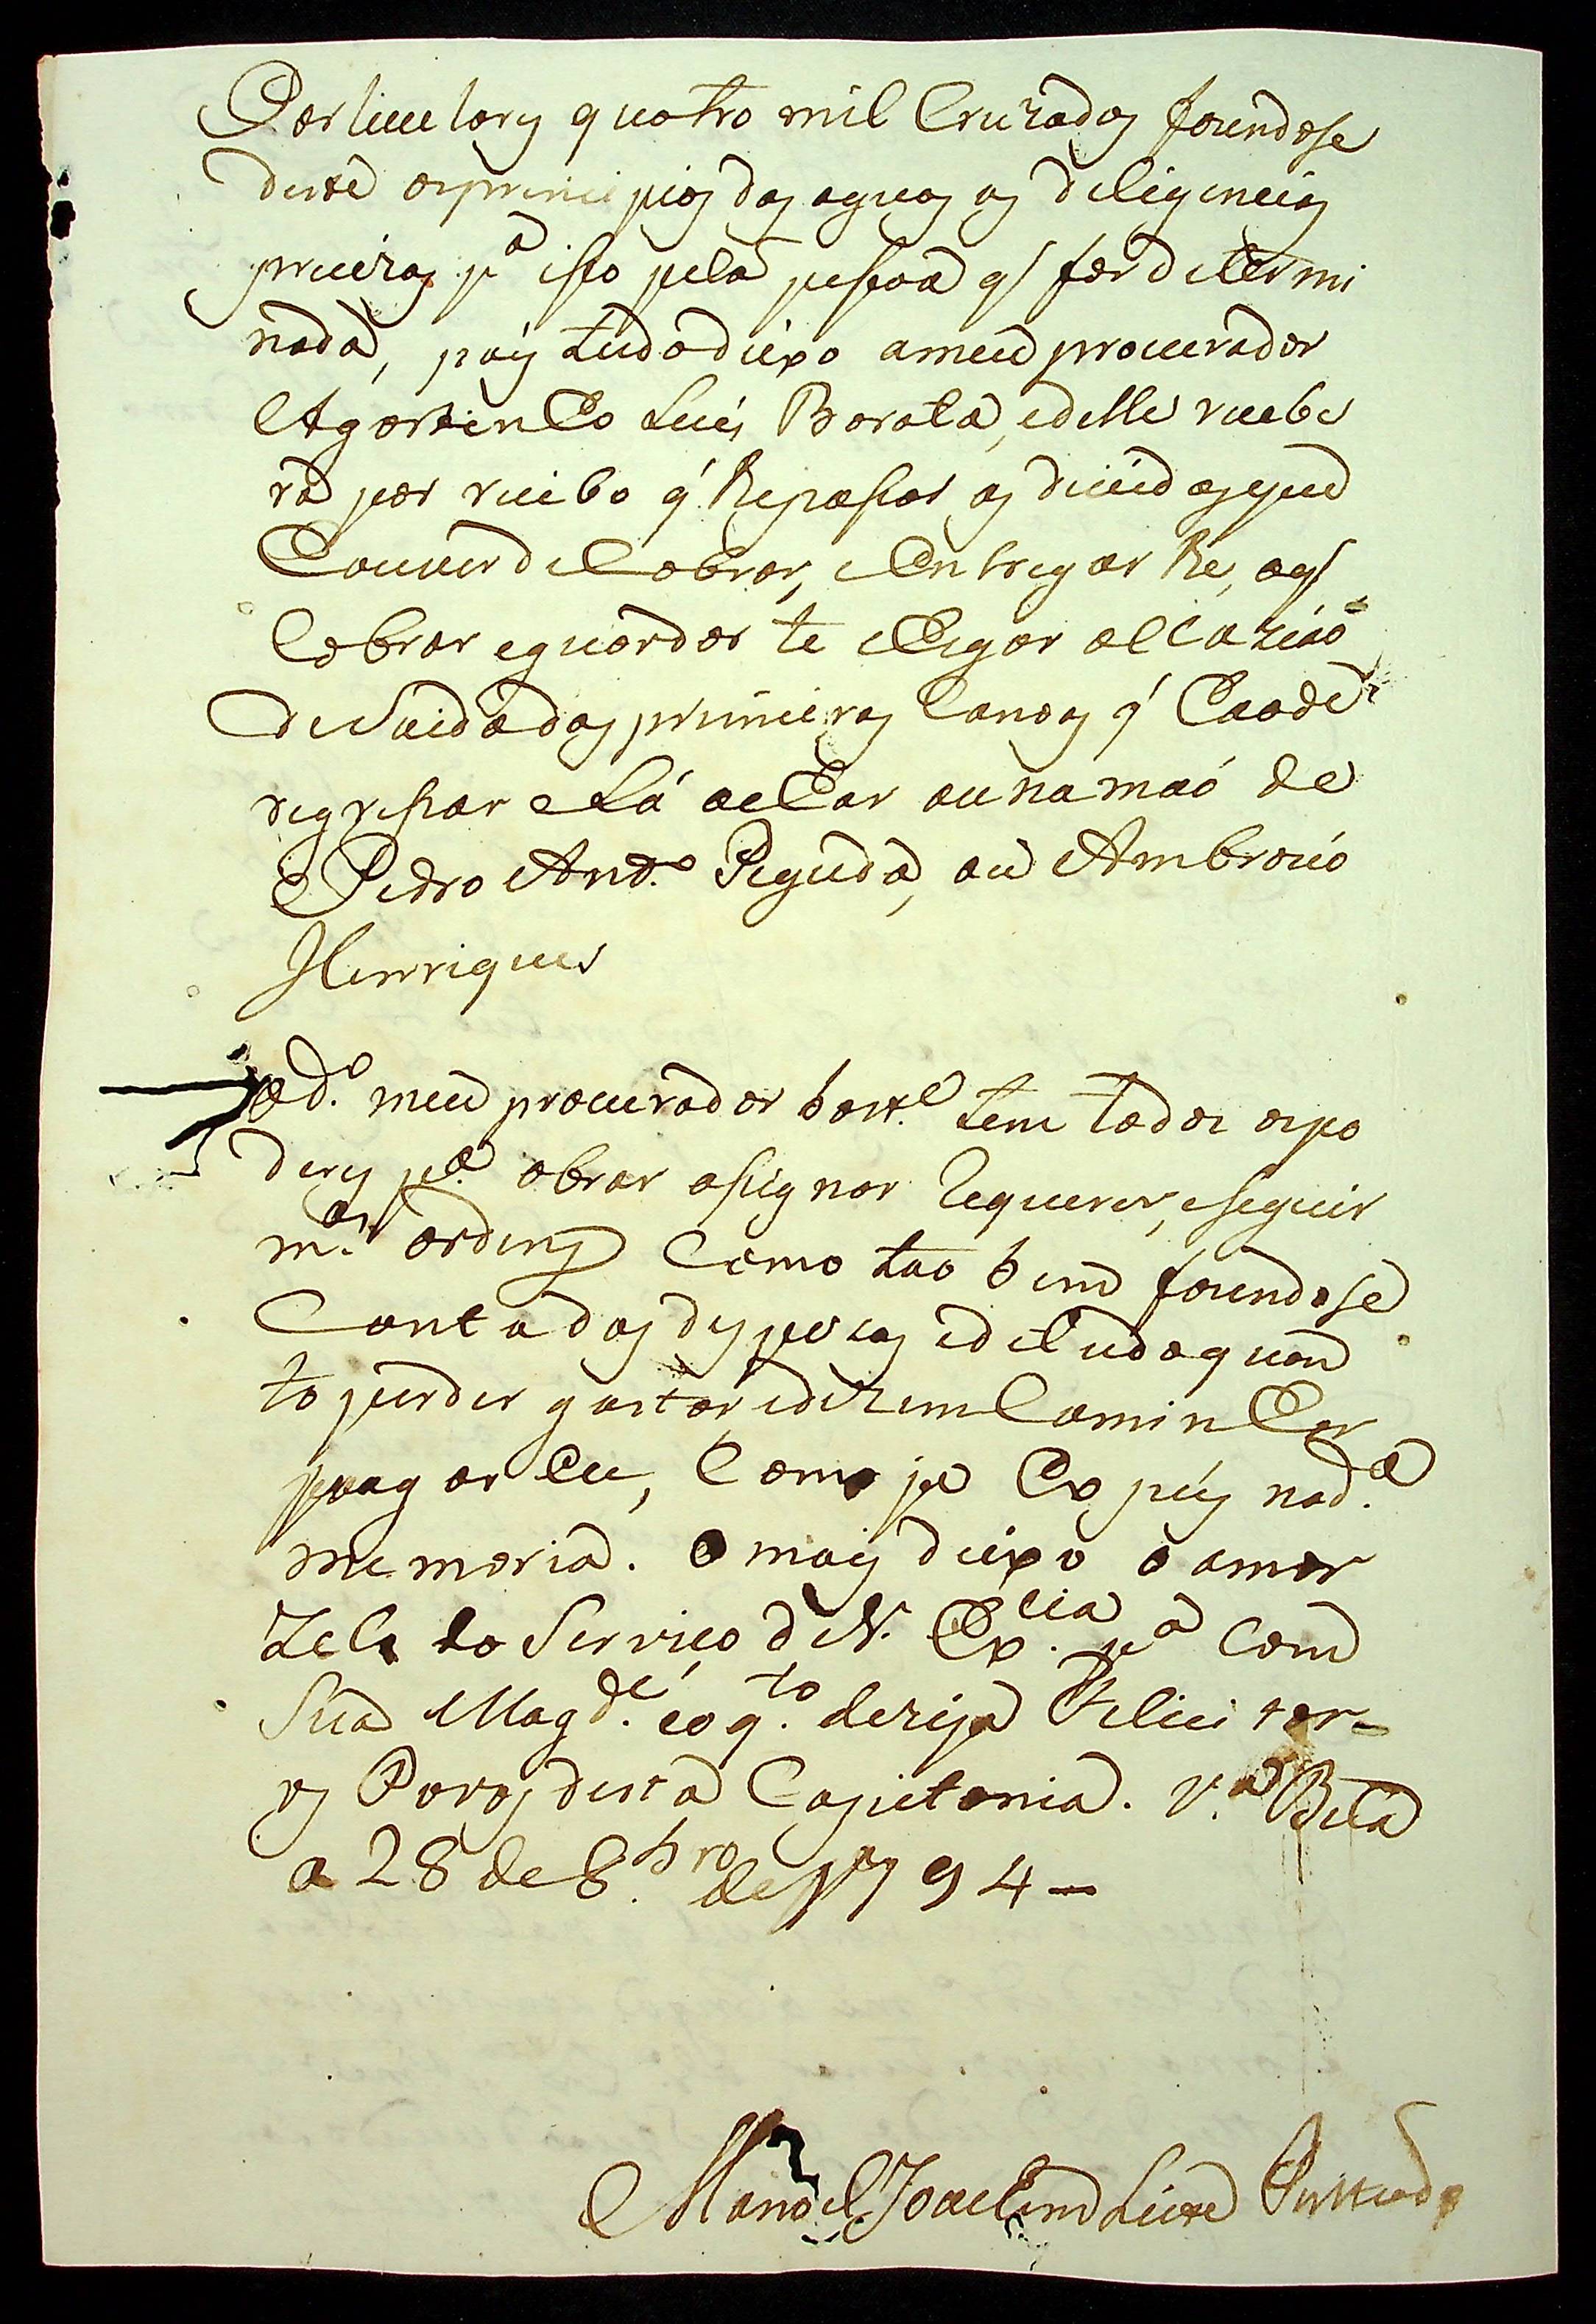 Particulares quatro mil Cruzados fazendose
deste osprincipios das agoas as deligencias
precizas pa isso pela pessoa q for determi
nada, pois tudo deixo a meu procurador
Agostinho Luis Barata, edelle recebe
rá por recibo q lhe passar, as dividas que
houver de Cobrar, e Entregar lhe, as q
Cobrar eguardar te chegar aocazião
de saida das primeiras Canoas q' haode
regressar e lá achar ou na mão de
Pedro Anto Pegudo, ou Ambrozio
Henriques
od.o meu procurador bast.e tem todos ospo
deres pa obrar assignar Requerer, eseguir
m.as ordens Como tão bem fazendose
Conta das despezas ede tudo quan
to perder gastar, edezemCaminhar
pagar Eu, Como já Expus na d.a
memoria. O mais deixo o amor
Zelo do Serviço de V. Ex.cia pa Com
Sua Mag.de eo q.to dezeja Felicitar
os Povos desta Capitania. V.a Bela
a 28 de 8.bro de 1794 —
Manoel Joachim Leite